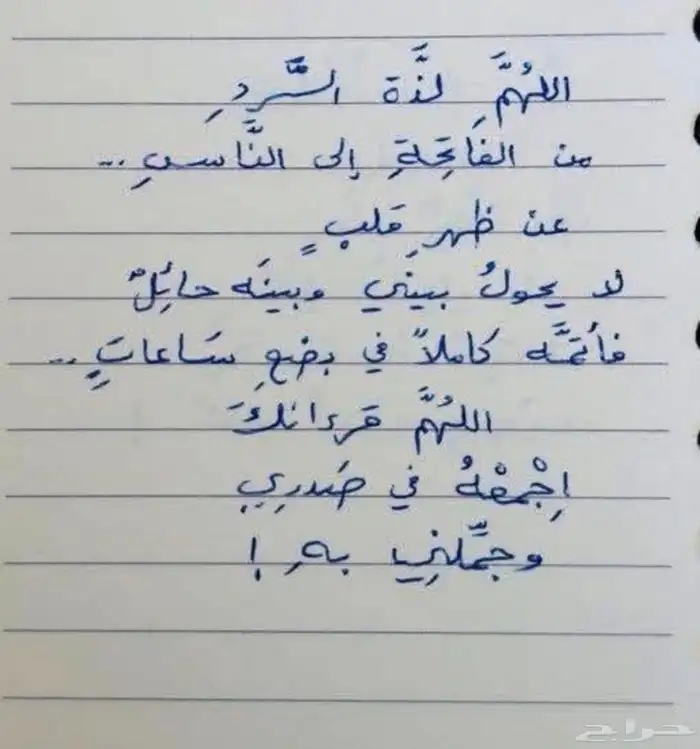 اللهُمَّ لذَّة السَّردِ
من الفَاتِحةِ إلى النَّاسِ ..
عن ظهرِ قلبٍ
لا يحولُ بيني وبينَه حائِلٌ
فأتمَّه كاملاً في بضعِ سَاعاتٍ ..
اللهُمَّ قرءانكَ
اِجْمعْهُ في صَدرِي
وجمِّلنِي بهِ !
حراج